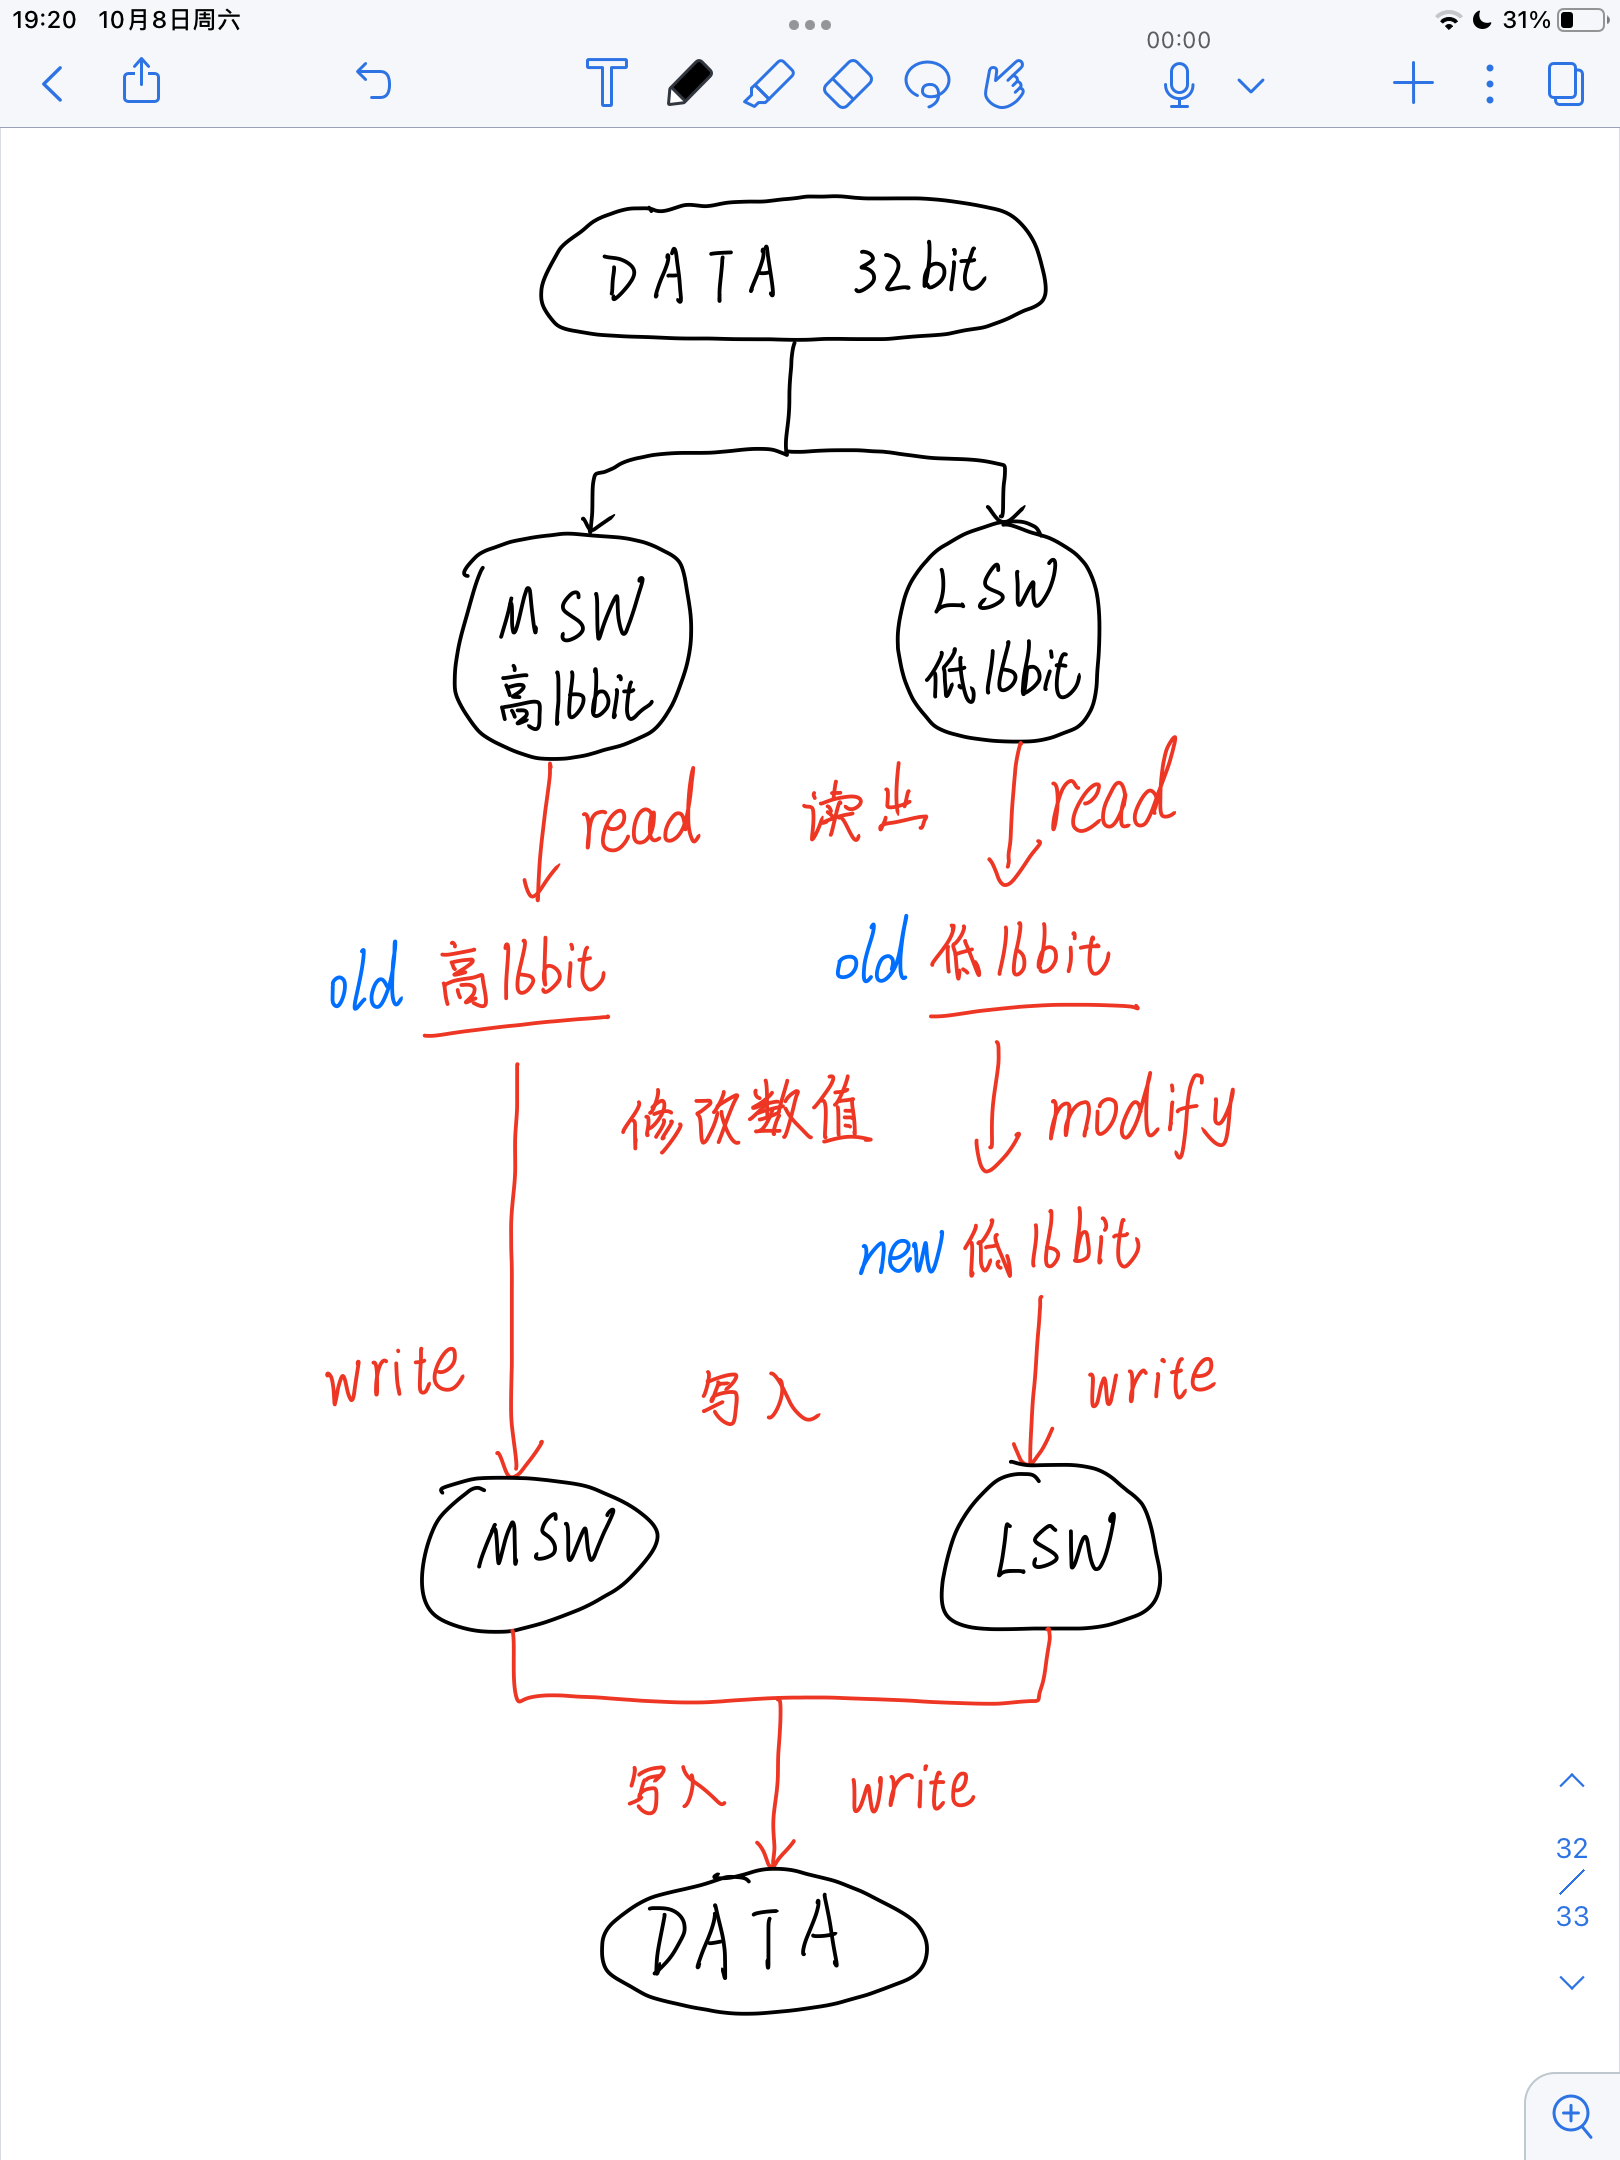 19:20 10月8日周六
31%
00:00
DATA 32bit
MSW
高16bit
LSW
低16bit
read 读出 read
old 高16bit
old 低16bit
修改数值 modify
new 低16bit
write 写入 write
MSW
LSW
写入 write
DATA
32
33